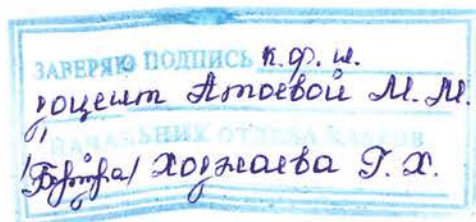 ЗАВЕРЯЮ ПОДПИСЬ к.ф.н.
доцент Атоевой М.М.
НАЧАЛЬНИК ОТДЕЛА КАДРОВ
Ходжаева Г.Х.